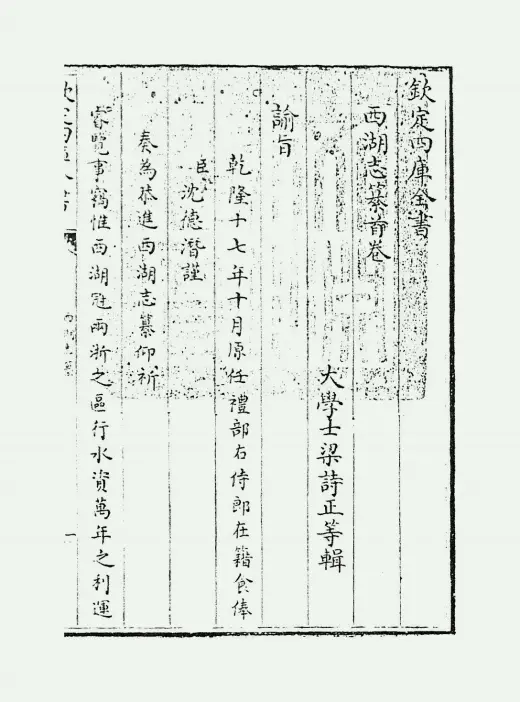 欽定四庫全書
西湖志纂首卷
大學士梁詩正等輯
諭旨
乾隆十七年十月原任禮部右侍郎在籍食俸
臣沈德潛謹
奏為恭進西湖志纂仰祈
睿覽事竊惟西湖冠兩浙之區行水資萬年之利運
欽定四庫全書
一